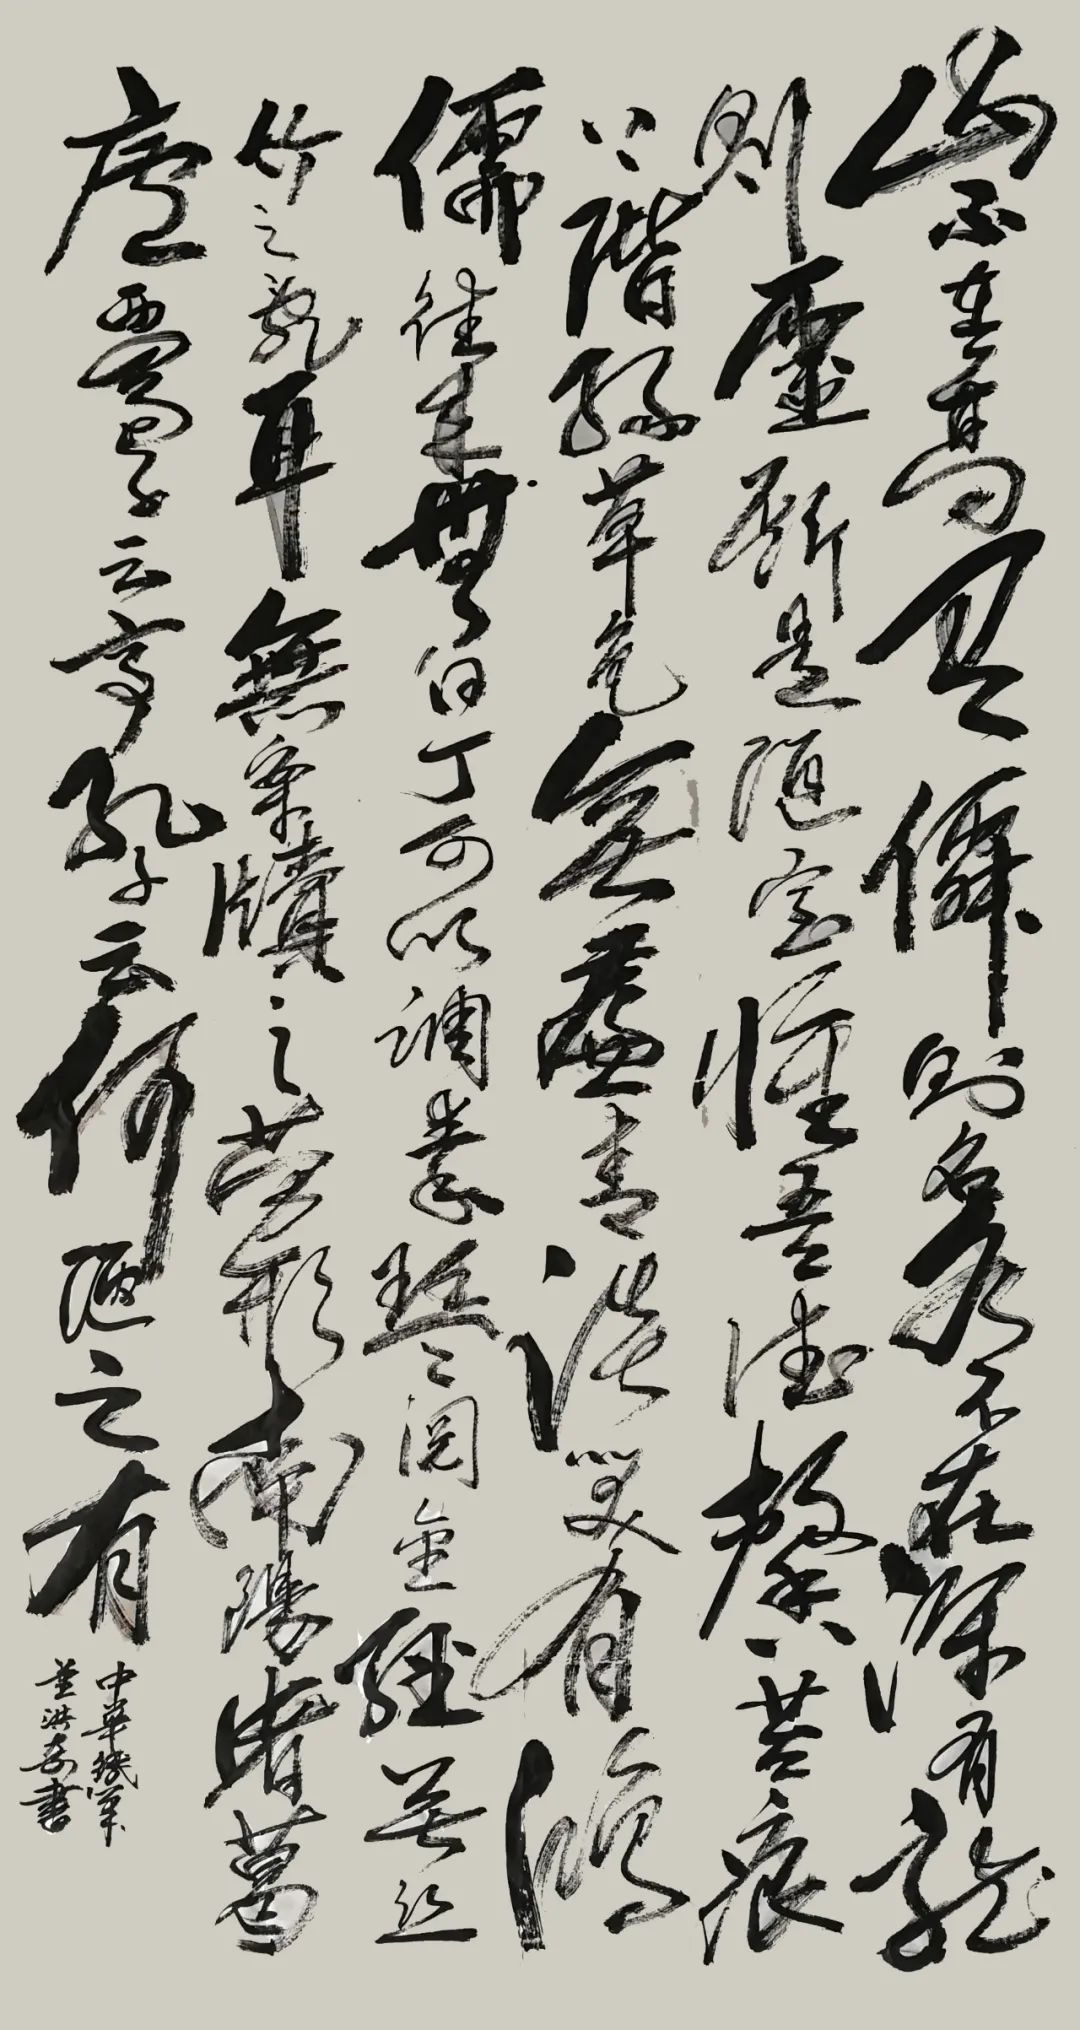 山不在高有僊則名水不在深有龍
則靈斯是陋室惟吾德馨苔痕
上階綠草色簾青談笑有鴻
儒往来無白丁可以調素琴閱金經無絲
竹之亂耳無案牘之勞形南陽諸葛
廬西蜀子云亭孔子云何陋之有
中華鐵軍
董洪奇書